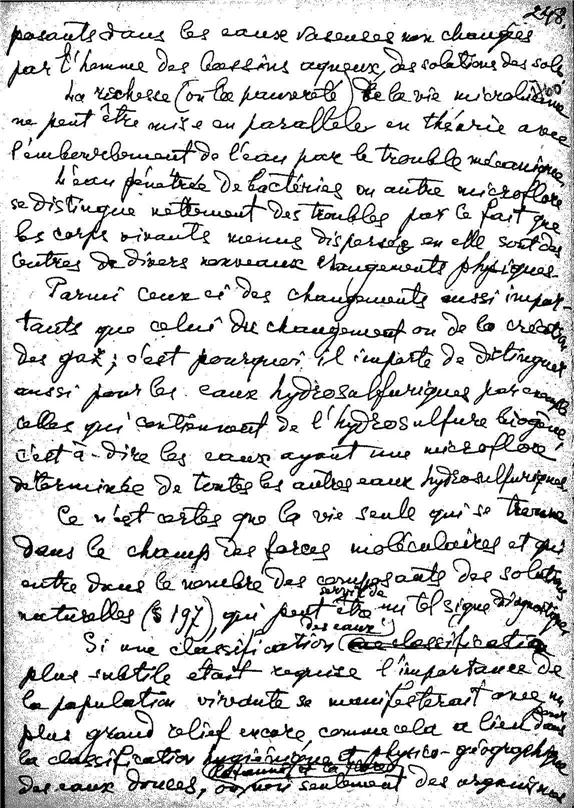 248.
posants dans les eaux vaseuses non changées
par l'homme des bassins aqueux, des solutions des sols.
La richesse (ou la pauvreté) de la vie microbienne
ne peut être mise en parallèle en théorie avec
l'embourbement de l'eau par le trouble mécanique.
L'eau pénétrée de bactéries ou autre microflore
se distingue nettement des troubles par le fait que
les corps vivants menus dispersés en elle sont des
centres de divers nouveaux changements physiques.
Parmi ceux ci des changements aussi impor-
tants que celui du changement ou de la création
des gaz; c'est pourquoi il importe de distinguer
aussi pour les eaux hydrosulfuriques par exemple
celles qui contiennent de l'hydrosulfure biogène,
c'est à-dire les eaux ayant une microflore
déterminée de toutes les autres eaux hydrosulfuriques
Ce n'est certes que la vie seule qui se trouve
dans le champ des forces moléculaires et qui
entre dans le nombre des composants des solutions
servir de
naturelles (§ 197), qui peut être un tel signe diagnostique
des eaux
Si une classification classification
plus subtile était requise l'importance de
la population vivante se manifesterait avec un
plus grand relief encore, comme cela a lieu pour dans
la classification hygiénique et physico-géographique
des eaux douces, où non seulement des organismes